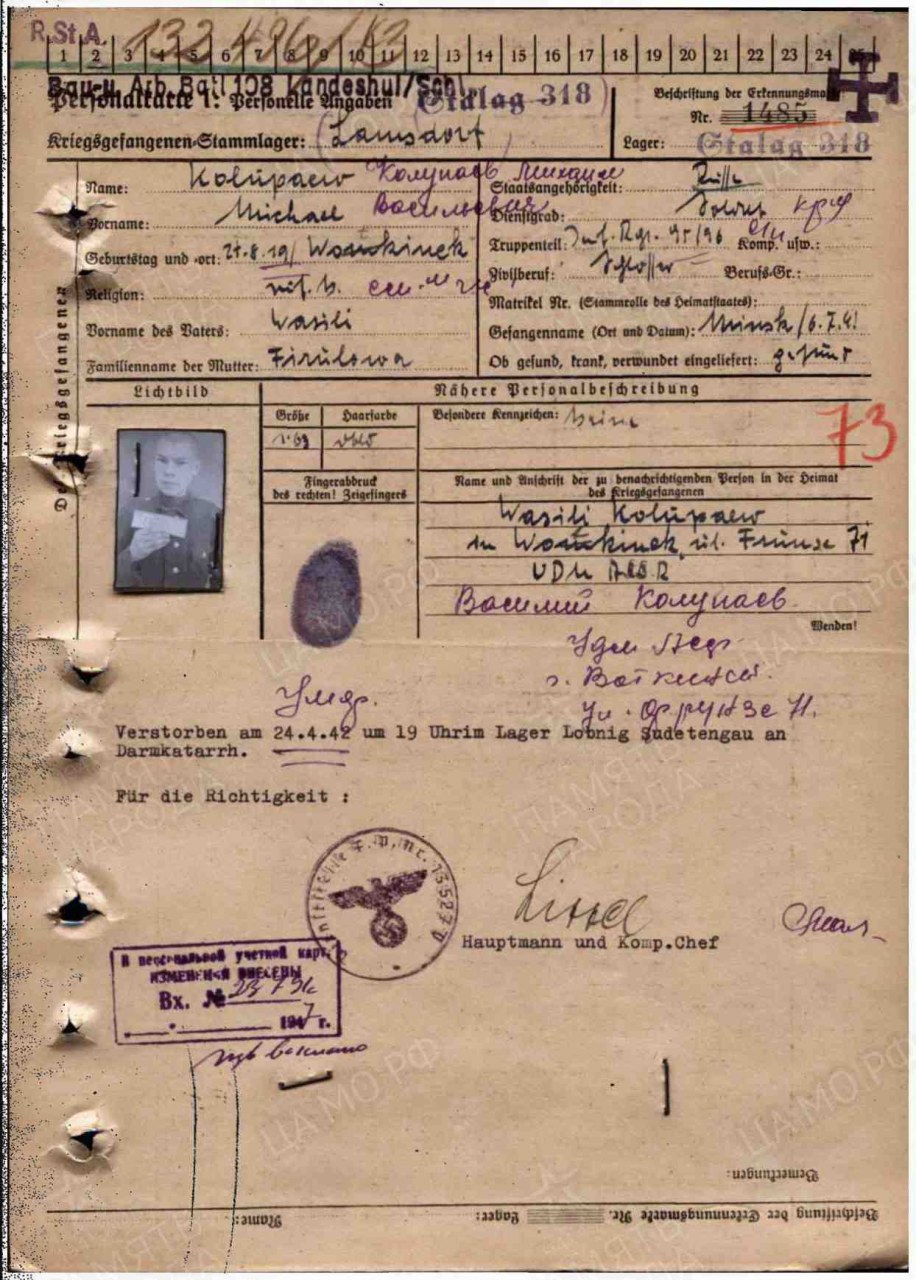 R.St.A.
133 496/43
1 2 3 4 5 6 7 8 9 10 11 12 13 14 15 16 17 18 19 20 21 22 23 24 25
Bau-u Arb. Batl 108 Landeshut/Schl.
Personalkarte I: Personelle Angaben
Stalag 318
Beschriftung der Erkennungsmarke
Nr. 1485
Kriegsgefangenen-Stammlager: Lamsdorf
Lager: Stalag 318
Des Kriegsgefangenen
Name: Kolupaew Колупаев Михаил
Vorname: Michael Васильевич
Geburtstag und -ort: 21.8.19/
Religion:
Vorname des Vaters: Wasili
Familienname der Mutter: Firulowa
Staatsangehörigkeit: Russe
Dienstgrad: Soldat кр-ц
Truppenteil: Inf. Rgt. 95/96 Komp. usw.:
Zivilberuf: Schlosser Berufs-Gr.:
Matrikel Nr. (Stammrolle des Heimatstaates):
Gefangennahme (Ort und Datum): Minsk/6.7.41
Ob gesund, krank, verwundet eingeliefert: gesund
Lichtbild
Nähere Personalbeschreibung
Größe Haarfarbe
1.69
Besondere Kennzeichen: keine
73
Fingerabdruck
des rechten! Zeigefingers
Name und Anschrift der zu benachrichtigenden Person in der Heimat
des Kriegsgefangenen
Wasili Kolupaew
in ul. Frunse 71
UDM ASSR
Василий Колупаев
Wenden!
Удм Асср
г. Воткинск
ул. Фрунзе 71.
Умер.
Verstorben am 24.4.42 um 19 Uhrim Lager Lobnig Sudetengau an
Darmkatarrh.
Für die Richtigkeit :
F.P.Nr. 13527
Hauptmann und Komp.Chef
В персональной учетной карт.
ИЗМЕНЕНИЯ ВНЕСЕНЫ
Вх. №
1947 г.
Bemerkungen:
Beschriftung der Erkennungsmarke Nr. Lager: Name:
ЦАМО РФ
ПАМЯТЬ
НАРОДА